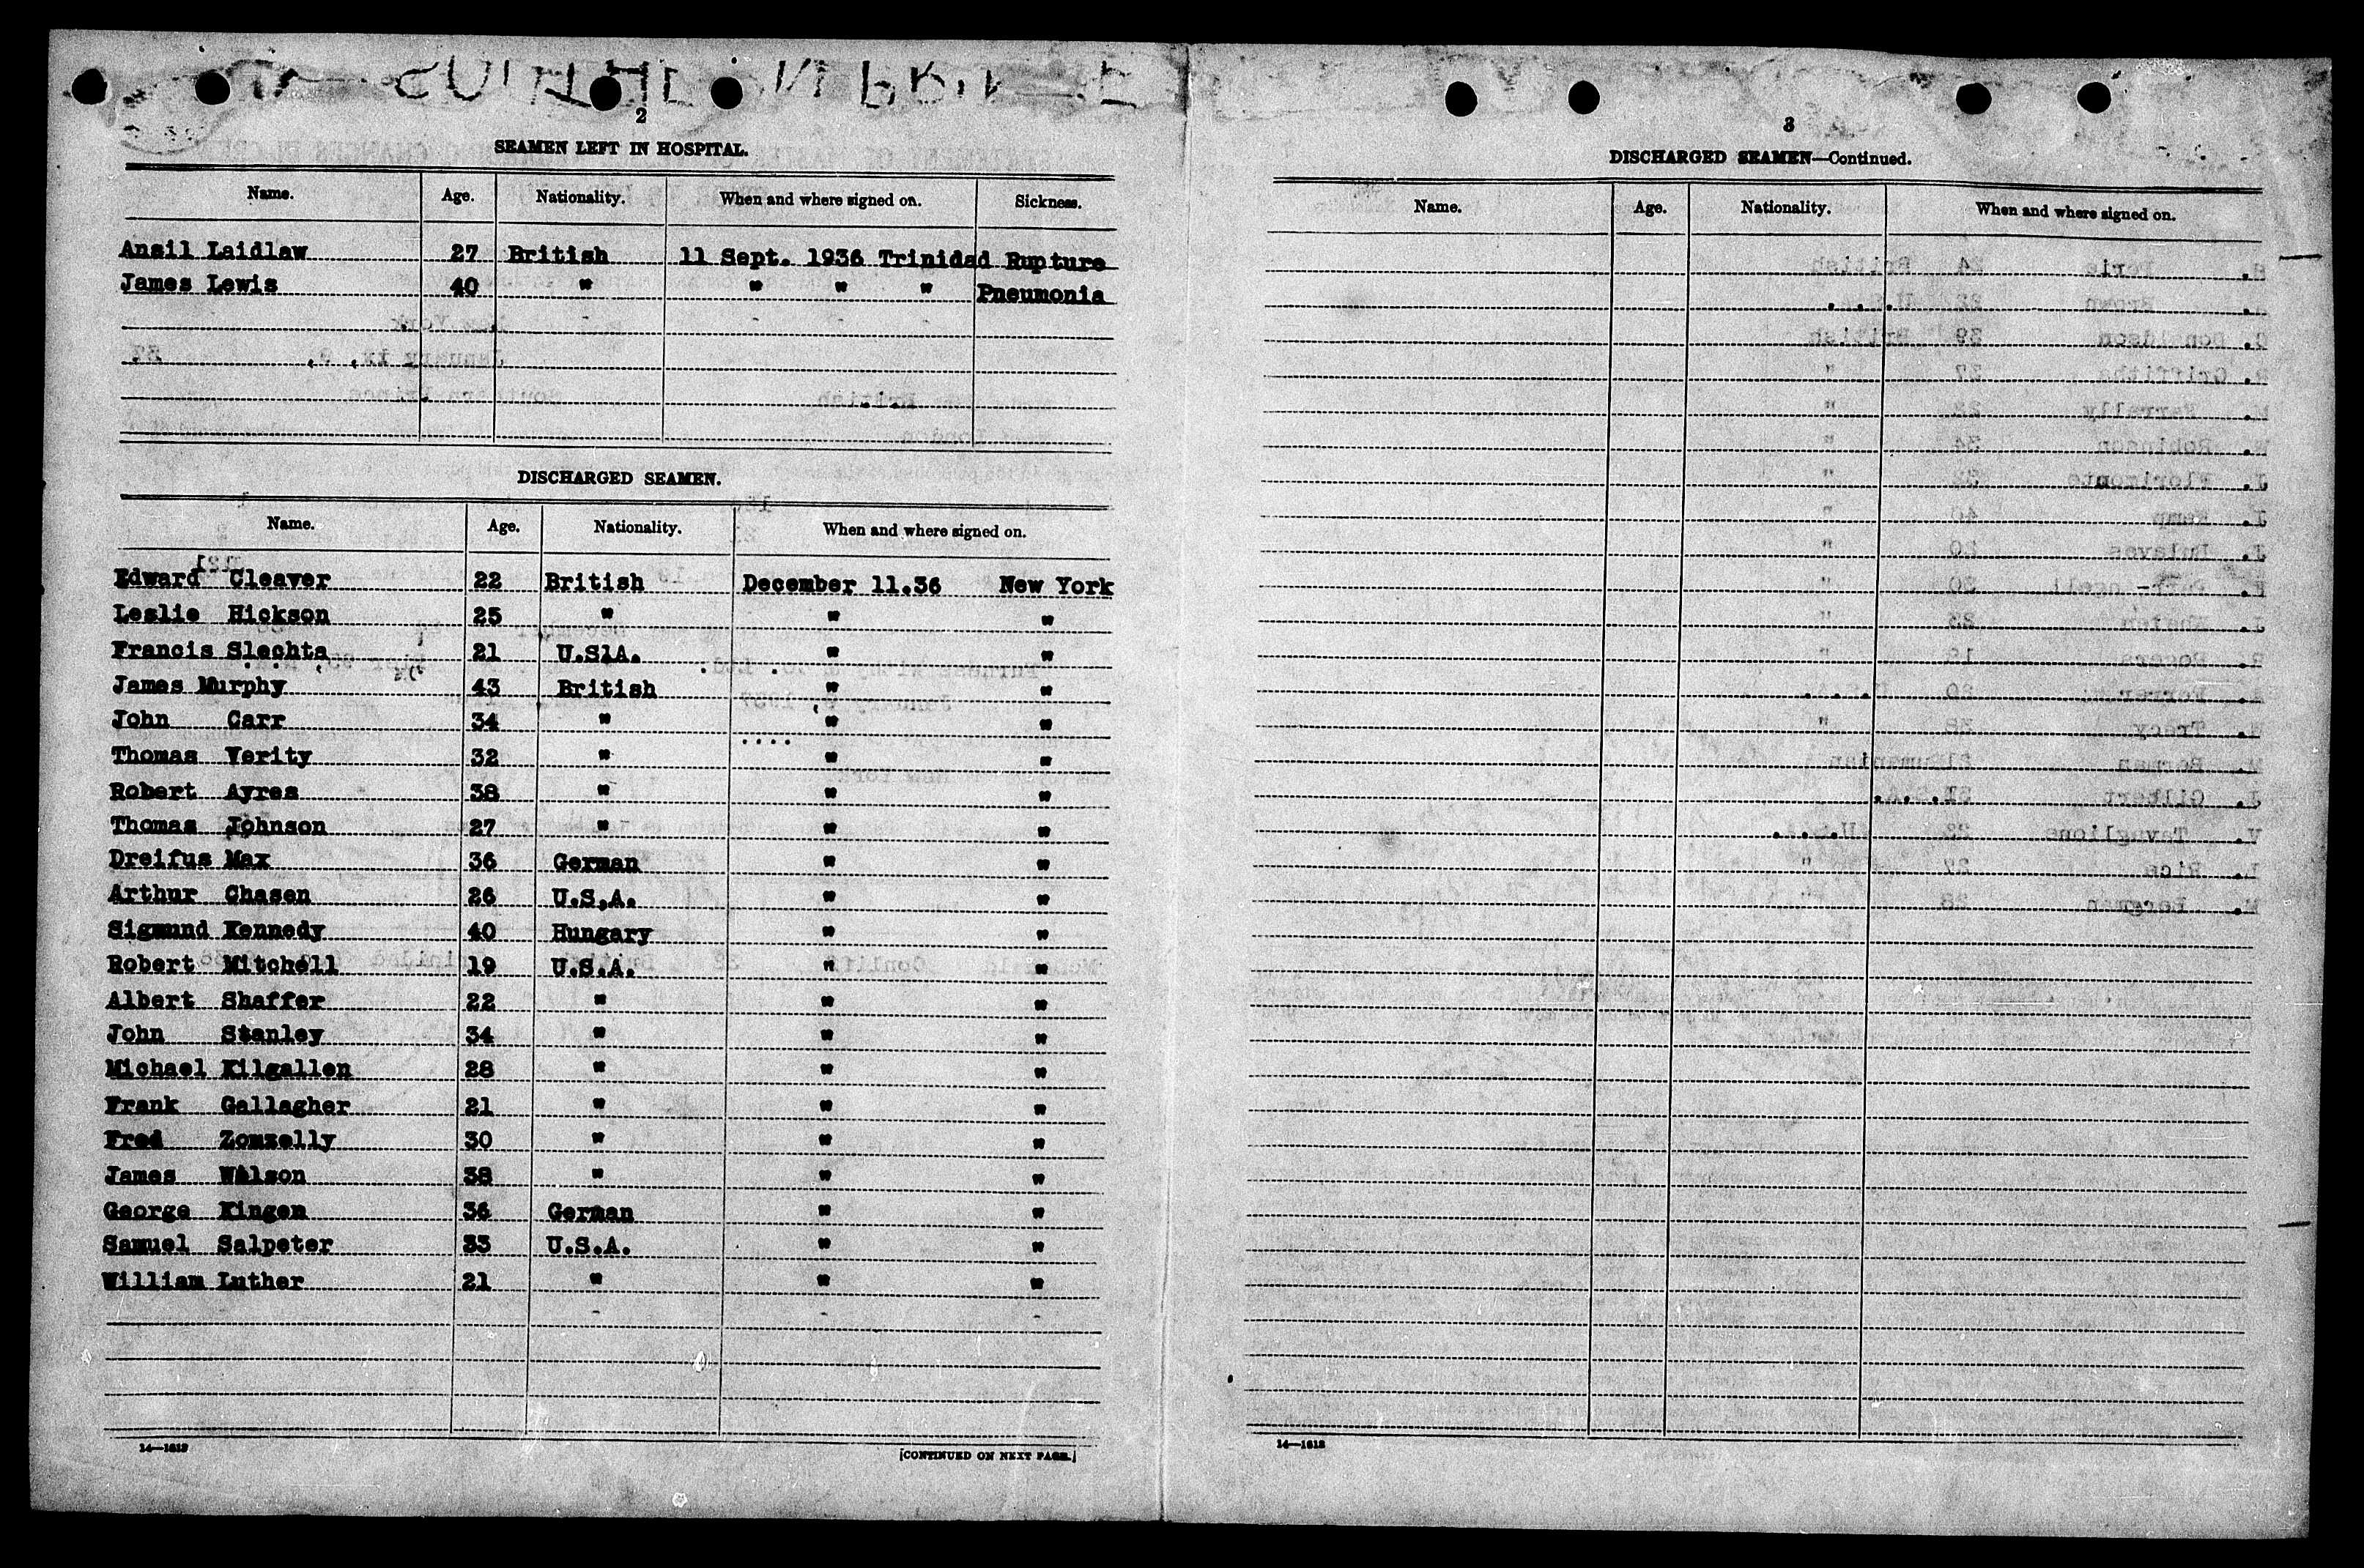 2
SEAMEN LEFT IN HOSPITAL.
Name. Age. Nationality. When and where signed on. Sickness.
Ansil Laidlaw 27 British 11 Sept. 1936 Trinidad Rupture
James Lewis 40 " " " " Pneumonia
DISCHARGED SEAMEN.
Name. Age. Nationality. When and where signed on.
Edward Cleaver 22 British December 11.36 New York
Leslie Hickson 25 " " "
Francis Slechta 21 U.S1A. " "
James Murphy 43 British " "
John Carr 34 " " "
Thomas Verity 32 " " "
Robert Ayres 38 " " "
Thomas Johnson 27 " " "
Dreifus Max 36 German " "
Arthur Chasen 26 U.S,A. " "
Sigmund Kennedy 40 Hungary " "
Robert Mitchell 19 U.S.A. " "
Albert Shaffer 22 " " "
John Stanley 34 " " "
Michael Kilgallen 28 " " "
Frank Gallagher 21 " " "
Fred Zomzelly 30 " " "
James Wilson 38 " " "
George Kingen 36 German " "
Samuel Salpeter 33 U.S.A. " "
William Luther 21 " " "
14—1612
[CONTINUED ON NEXT PAGE.]
3
DISCHARGED SEAMEN—Continued.
Name. Age. Nationality. When and where signed on.
14—1612